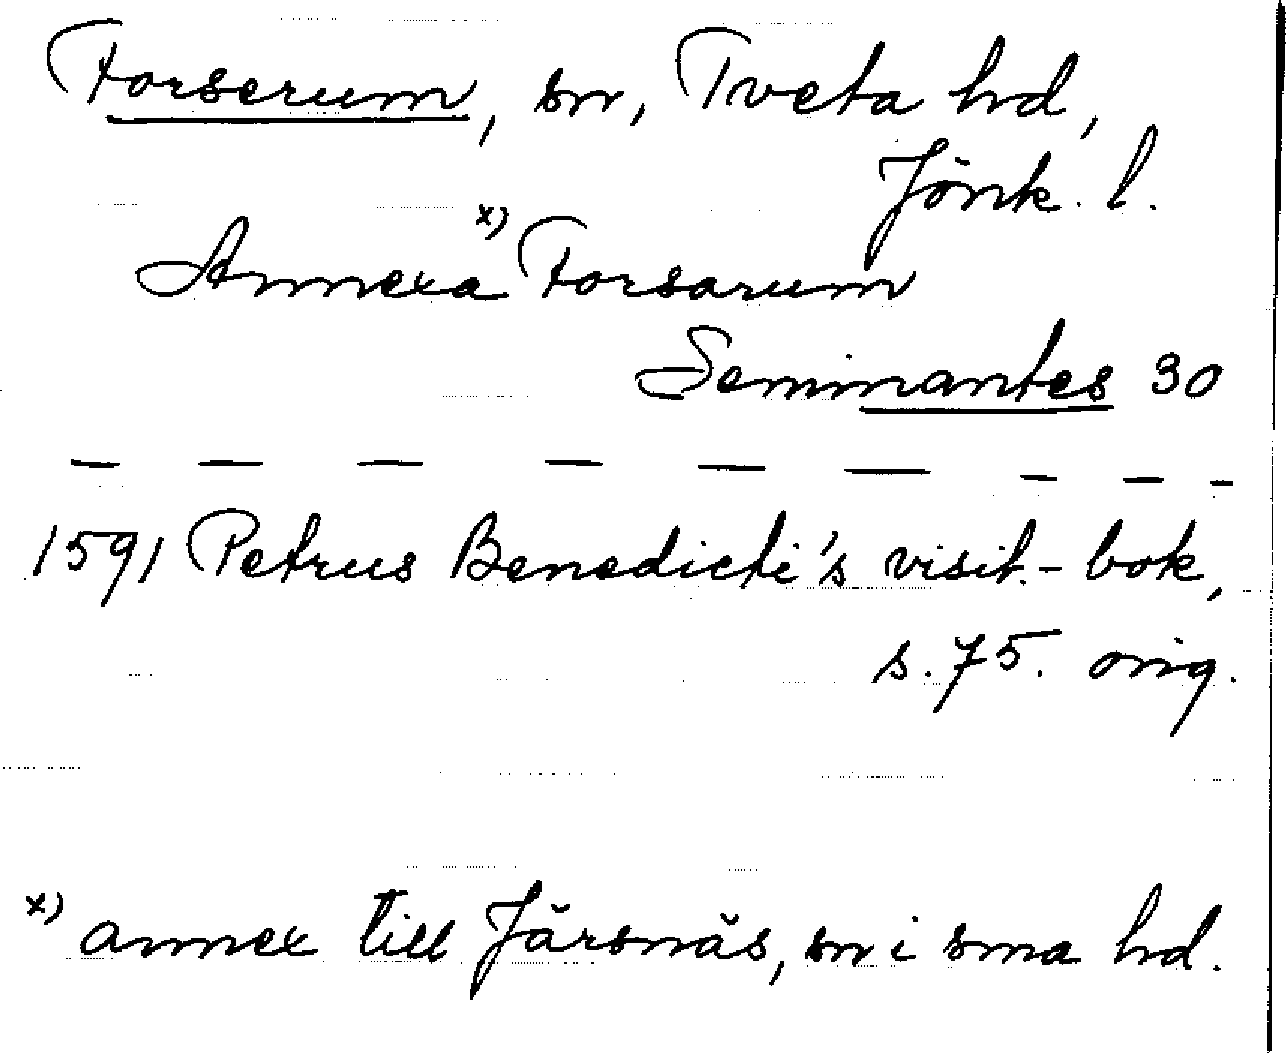 Forserum, sn, Tveta hd,
Jönk. l.
Annexa x) Forsarum
Seminantes 30
1591 Petrus Benedicti's visit.-bok,
s. 75. orig.
x) annex till Järsnäs, sn i sma hd.